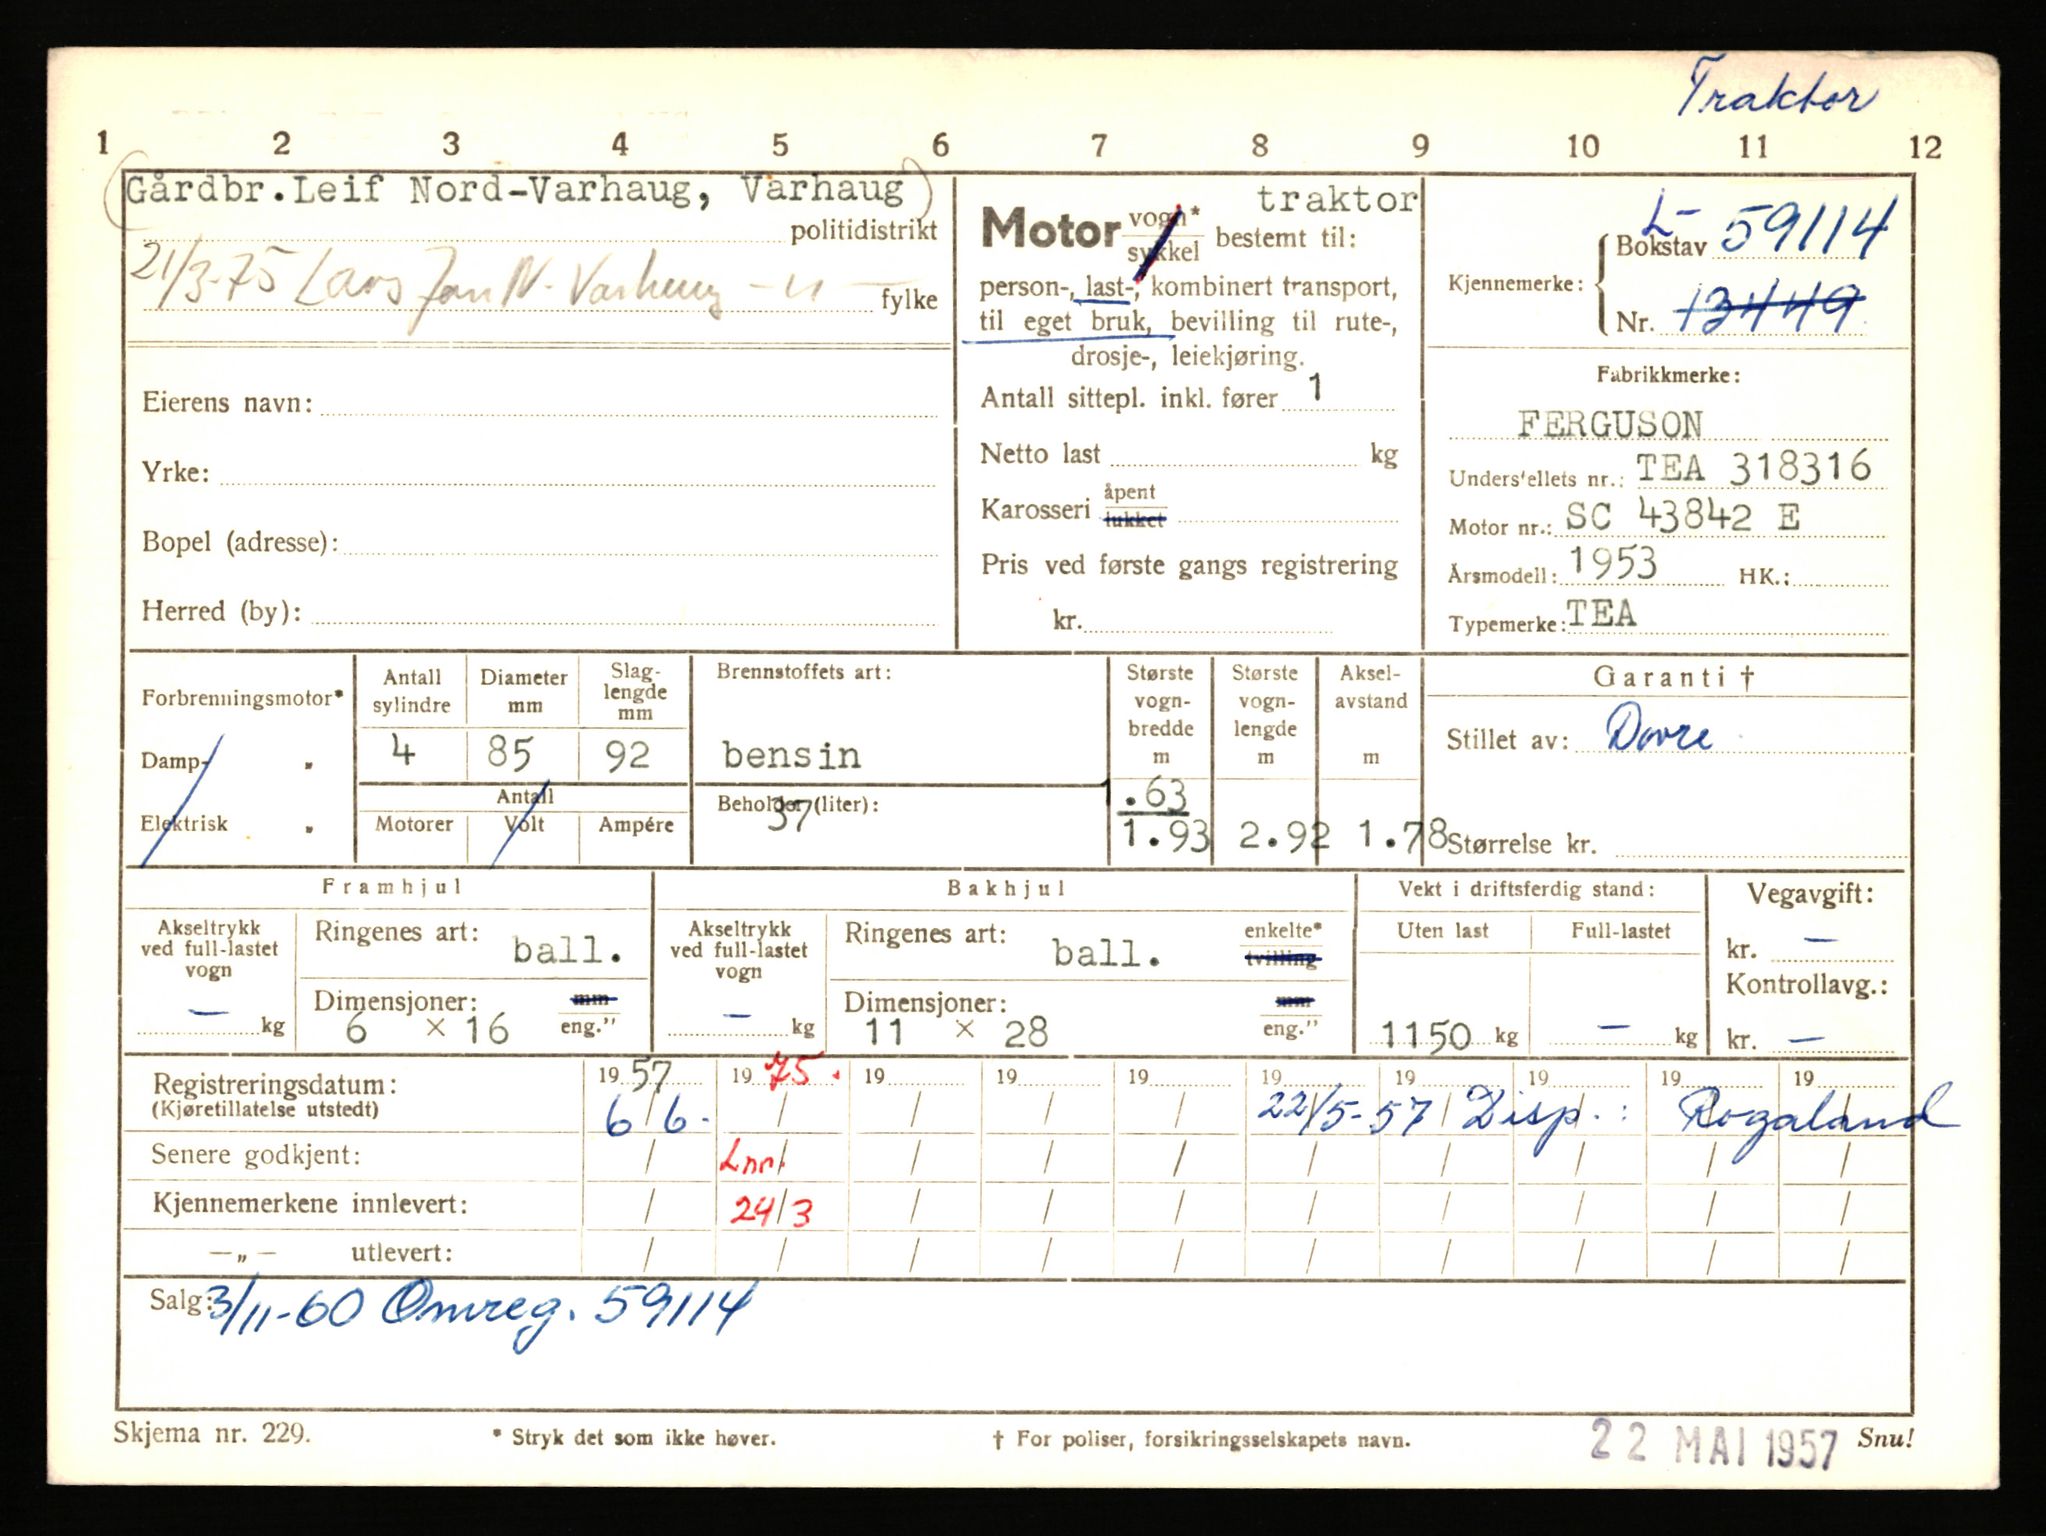 Traktor
1 2 3 4 5 6 7 8 9 10 11 12
(Gårdbr.Leif Nord-Varhaug, Varhaug)
politidistrikt
21/3-75 Lars Jan N. Varhaug - " -
fylke
Eierens navn:
Yrke:
Bopel (adresse):
Herred (by):
traktor
Motor vogn* / sykkel bestemt til:
person-, last-, kombinert transport,
til eget bruk, bevilling til rute-,
drosje-, leiekjøring.
Antall sittepl. inkl. fører 1
Netto last kg
Karosseri åpent / lukket
Pris ved første gangs registrering
kr.
Kjennemerke: Bokstav L- 59114
Nr. 13449
Fabrikkmerke:
FERGUSON
Unders'ellets nr.: TEA 318316
Motor nr.: SC 43842 E
Årsmodell: 1953 HK.:
Typemerke: TEA
Forbrenningsmotor*
Damp- "
Elektrisk "
Antall sylindre 4
Diameter mm 85
Slag-lengde mm 92
Antall
Motorer Volt Ampére
Brennstoffets art:
bensin
Beholder (liter): 37
Største vogn-bredde m .63 1.93
Største vogn-lengde m 2.92
Aksel-avstand m 1.78
Garanti †
Stillet av: Dovre
Størrelse kr.
Framhjul
Akseltrykk ved full-lastet vogn — kg
Ringenes art: ball.
Dimensjoner: mm
6 × 16 eng."
Bakhjul
Akseltrykk ved full-lastet vogn — kg
Ringenes art: ball. enkelte* tvilling
Dimensjoner: mm
11 × 28 eng."
Vekt i driftsferdig stand:
Uten last 1150 kg
Full-lastet — kg
Vegavgift:
kr. —
Kontrollavg.:
kr. —
Registreringsdatum: 1957 1975. 19 19 19 19 19 19 19 19
(Kjøretillatelse utstedt) 6/6- / / / / 22/5-57 Disp.: Rogaland
Senere godkjent: / Lnr. / / / / / / / /
Kjennemerkene innlevert: / 24/3 / / / / / / / /
—„— utlevert: / / / / / / / / / /
Salg: 3/11-60 Omreg. 59114
Skjema nr. 229. * Stryk det som ikke høver. † For poliser, forsikringsselskapets navn. 22 MAI 1957 Snu!